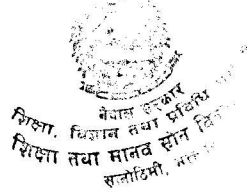 नेपाल सरकार
शिक्षा, विज्ञान तथा प्रविधि
शिक्षा तथा मानव स्रोत
सानोठिमी,